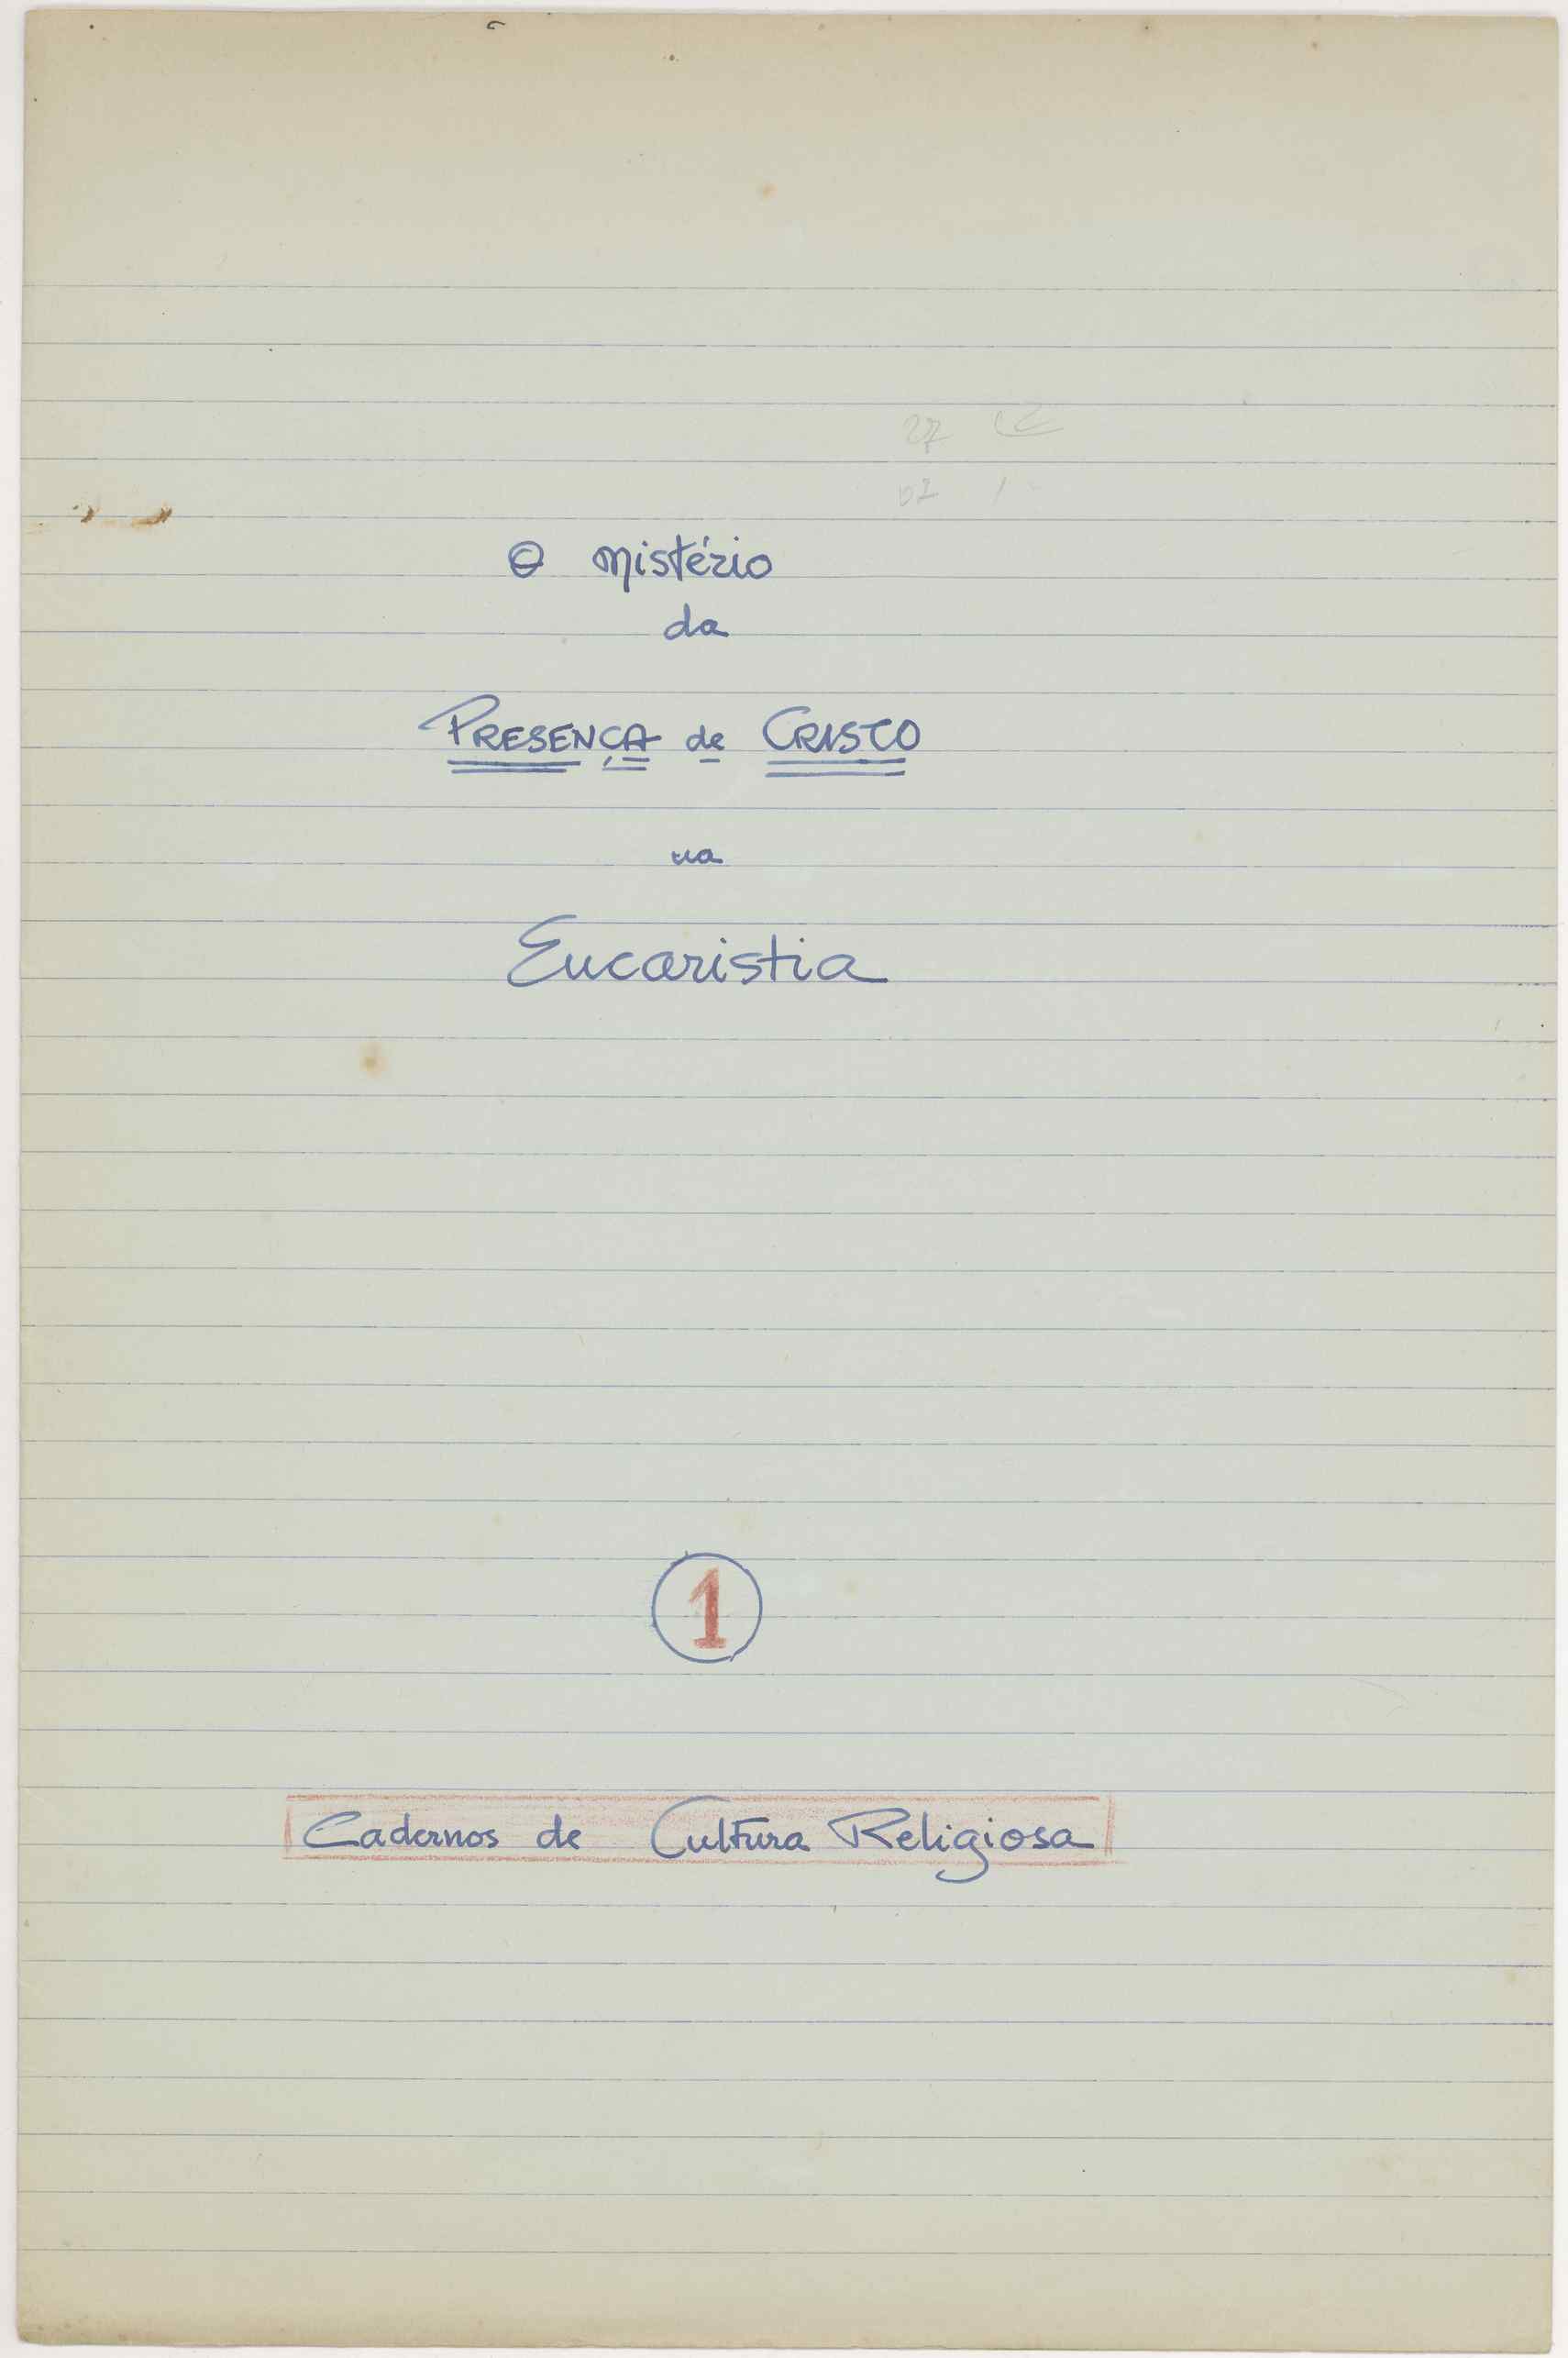 O Mistério
da
PRESENÇA de CRISTO
na
Eucaristia
1
Cadernos de Cultura Religiosa